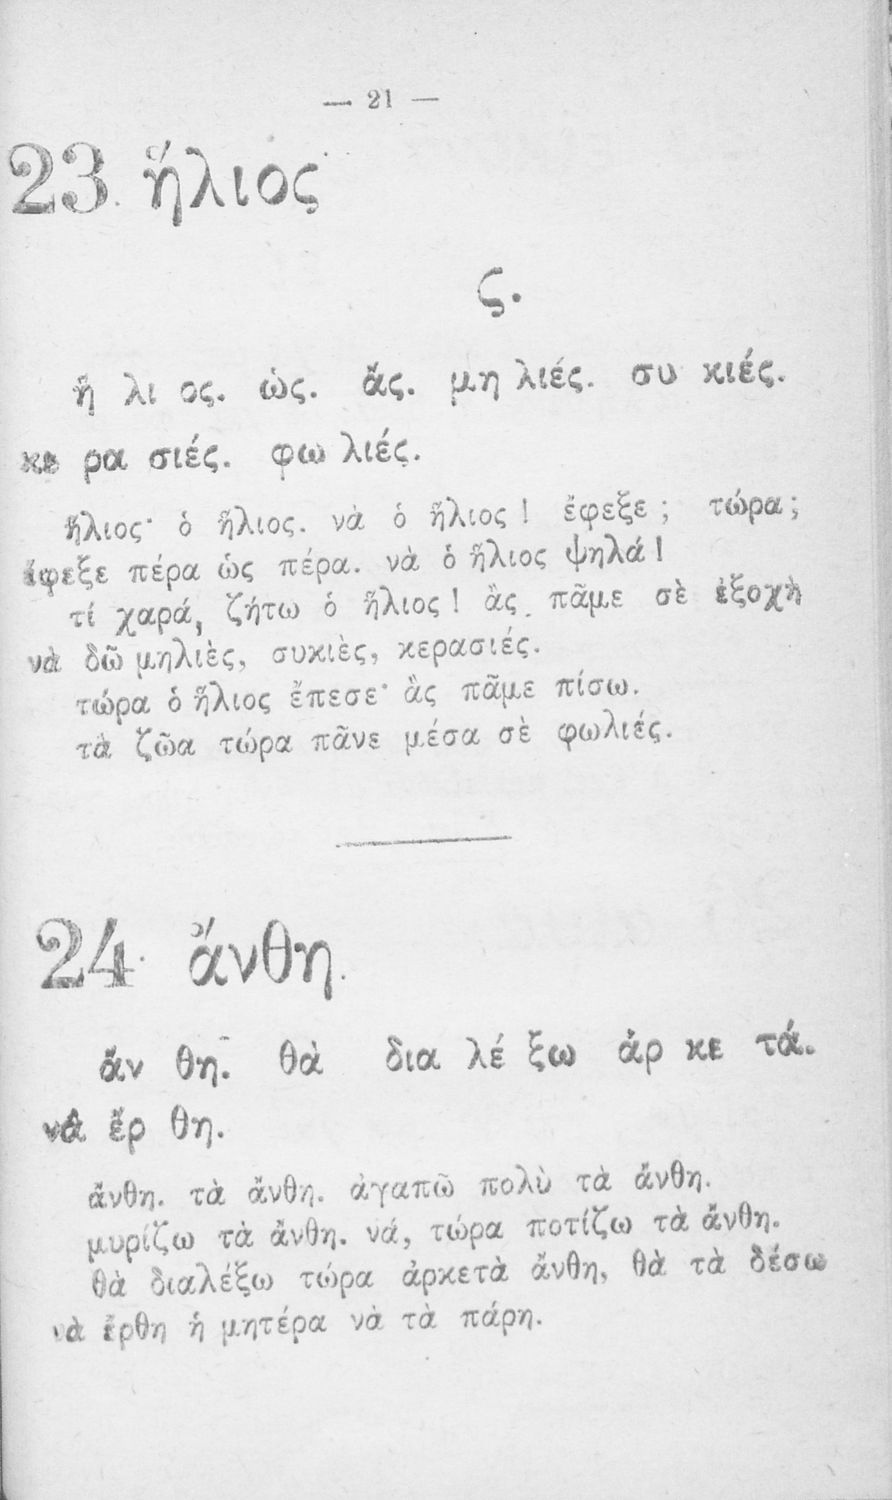 — 21 —
23. ἥλιος
ς.
ἥ λι ος. ὡς. ἄς. μη λιές. συ κιές.
κε ρα σιές. φω λιές.
ἥλιος· ὁ ἥλιος. νὰ ὁ ἥλιος! ἔφεξε; τώρα;
ἔφεξε πέρα ὡς πέρα. νὰ ὁ ἥλιος ψηλά!
τί χαρά, ζήτω ὁ ἥλιος! ἂς πᾶμε σὲ ἐξοχὴ
νὰ δῶ μηλιὲς, συκιὲς, κερασιές.
τώρα ὁ ἥλιος ἔπεσε· ἂς πᾶμε πίσω.
τὰ ζῶα τώρα πᾶνε μέσα σὲ φωλιές.
24. ἄνθη.
ἄν θη. θὰ δια λέ ξω ἀρ κε τά.
νὰ ἔρ θη.
ἄνθη. τὰ ἄνθη. ἀγαπῶ πολὺ τὰ ἄνθη.
μυρίζω τὰ ἄνθη. νά, τώρα ποτίζω τὰ ἄνθη.
θὰ διαλέξω τώρα ἀρκετὰ ἄνθη, θὰ τὰ δέσω
νὰ ἔρθη ἡ μητέρα νὰ τὰ πάρη.